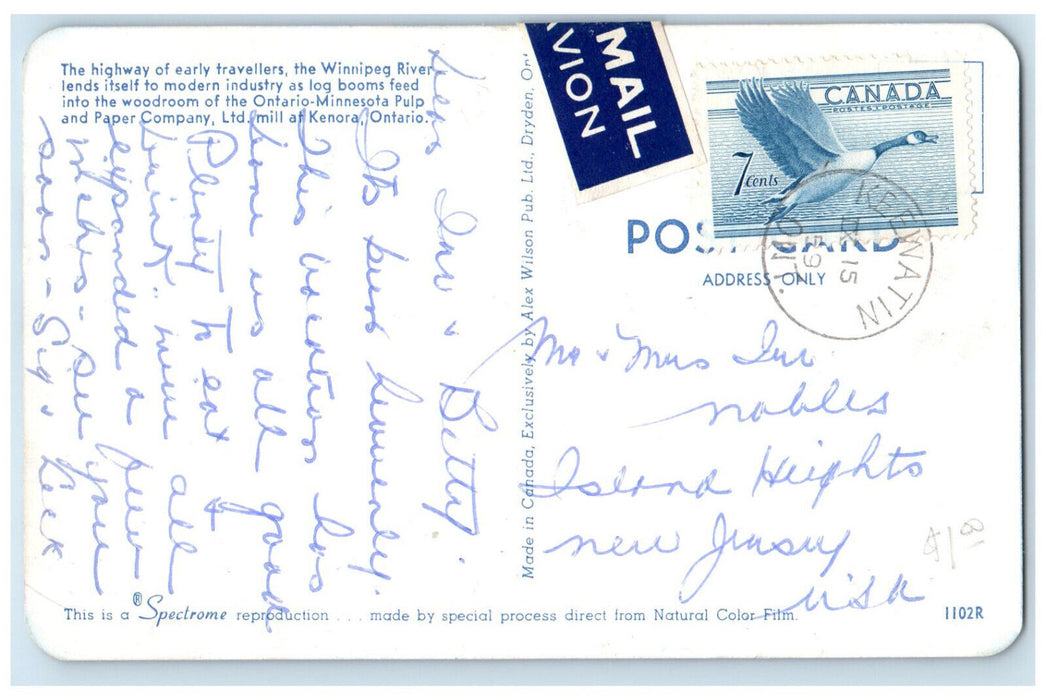 The highway of early travellers, the Winnipeg River
lends itself to modern industry as log booms feed
into the woodroom of the Ontario-Minnesota Pulp
and Paper Company, Ltd. mill at Kenora, Ontario.
Dear Irv & Betty.
Its been heavenly.
This vacation has
done us all good
Plenty to eat &
drink mine all
expanded a few
inches - see you
soon - Sig &
This is a ® Spectrome reproduction . . . made by special process direct from Natural Color Film.
Made in Canada, Exclusively by Alex Wilson Pub. Ltd., Dryden, Ont
MAIL
AVION
CANADA
POSTES-POSTAGE
7 cents
KEEWATIN
IX 15
59
ONT.
POST CARD
ADDRESS ONLY
Mr & Mrs Irv
Nobles
Island Heights
New Jersey
USA
1102R